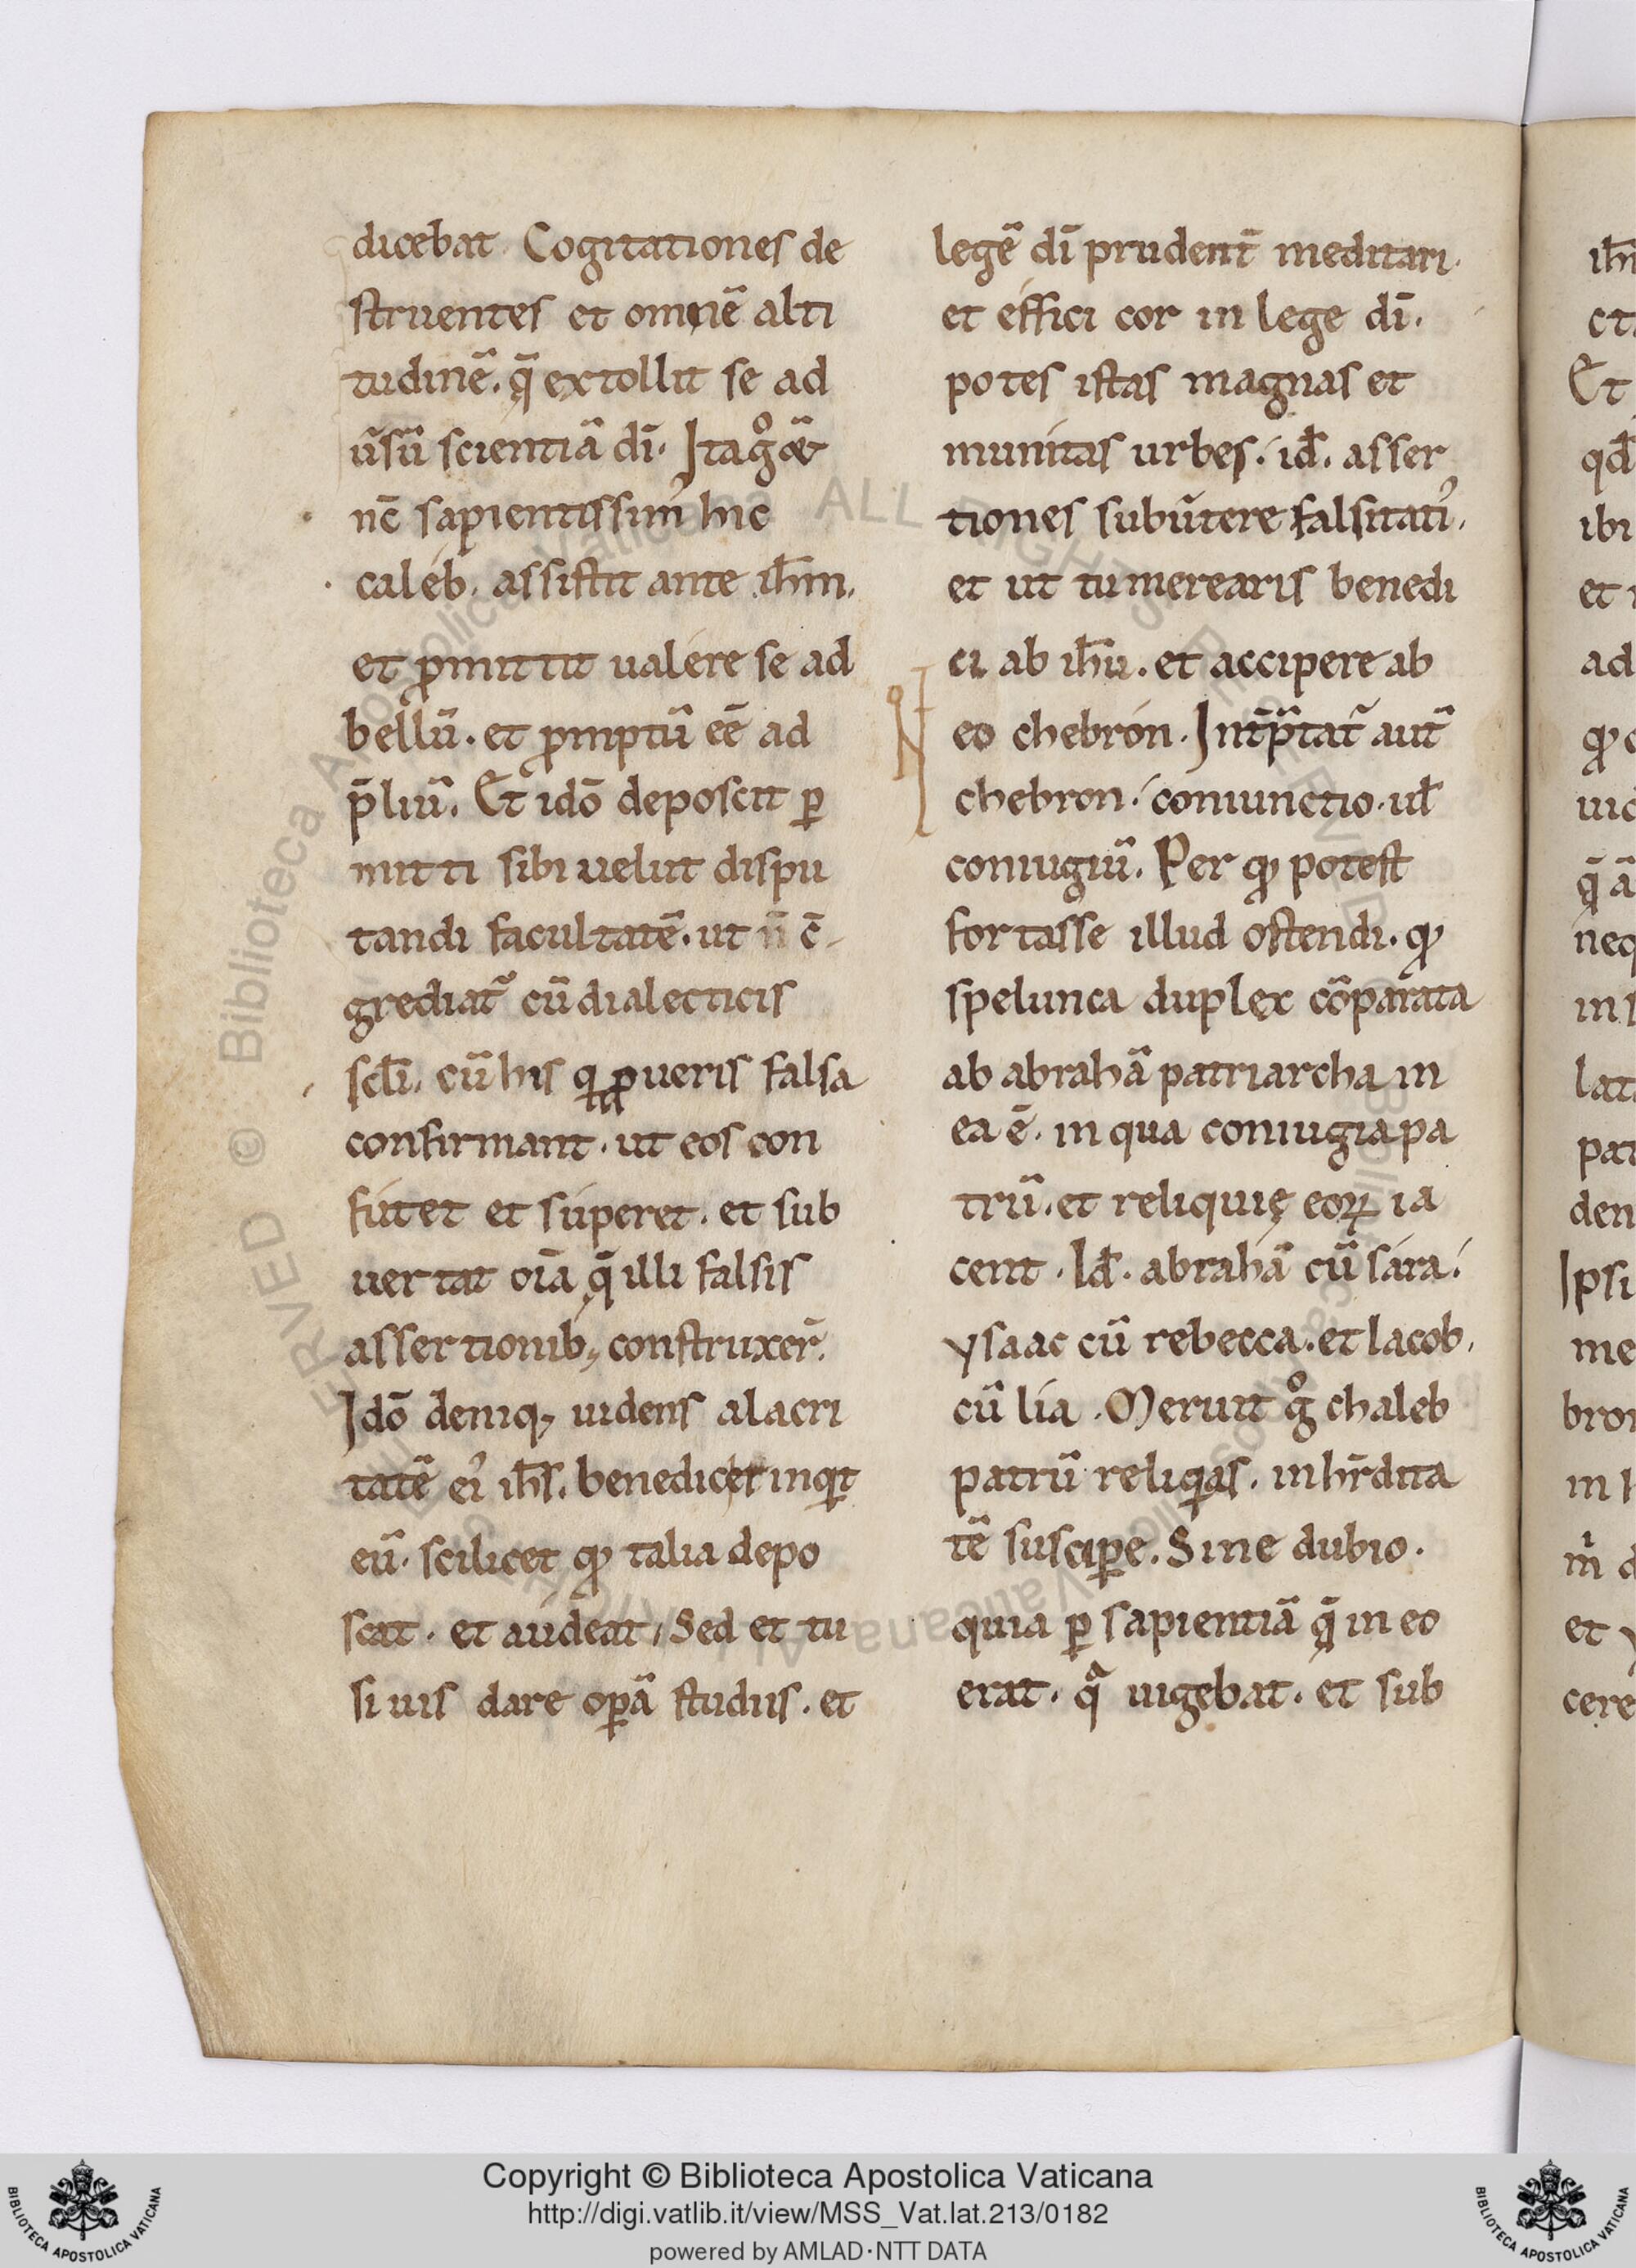 dicebat Cogitationes de
struentes et omnē alti
tudinē. q̄ extollit se ad
ūsū scientiā dī. Itaḡ &
nc̄ sapientissim' hic
caleb. assistit ante ih̄m.
et ꝓmittit ualere se ad
bellū. et ꝓmptū eē ad
p̄liū. Et idō deposcit ꝑ
mitti sibi uelut dispu
tandi facultatē. ut n̄ c̄
grediat᷑ cū dialecticis
scl̄i. cū his q ꝓ ueris falsa
confirmant. ut eos con
futet et superet. et sub
uertat oīa q̄ illi falsis
assertionib; construxer̄.
Idō deniq; uidens alacri
tatē ei' ih̄s. benedicet inqt
eū. scilicet qđ talia depo
scat. et audeat. Sed et tu
si uis dare oꝑā studiis. et
legē dī prudent̄ meditari.
et effici cor in lege dī.
potes istas magnas et
munitas urbes. id̄. asser
tiones subūtere falsitati'.
et ut tu merearis benedi
ci ab ih̄u. et accipere ab
eo chebron. Int̄p̄tat᷑ aut̄
chebron. coniunctio. ul̄
coniugiū. Per qđ potest
fortasse illud ostendi. qđ
spelunca duplex cōparata
ab abrahā patriarcha in
ea ē. in qua coniugia pa
trū. et reliquię eoꝝ ia
cent. Id̄. abrahā cū sara.
ysaac cū rebecca. et Iacob.
cū lia. Meruit g° chaleb
patrū reliqas. in hr̄dita
tē susciꝑe. Sine dubio.
quia ꝑ sapientiā q̄ in eo
erat. qa uigebat. et sub
Copyright © Biblioteca Apostolica Vaticana
http://digi.vatlib.it/view/MSS_Vat.lat.213/0182
powered by AMLAD·NTT DATA